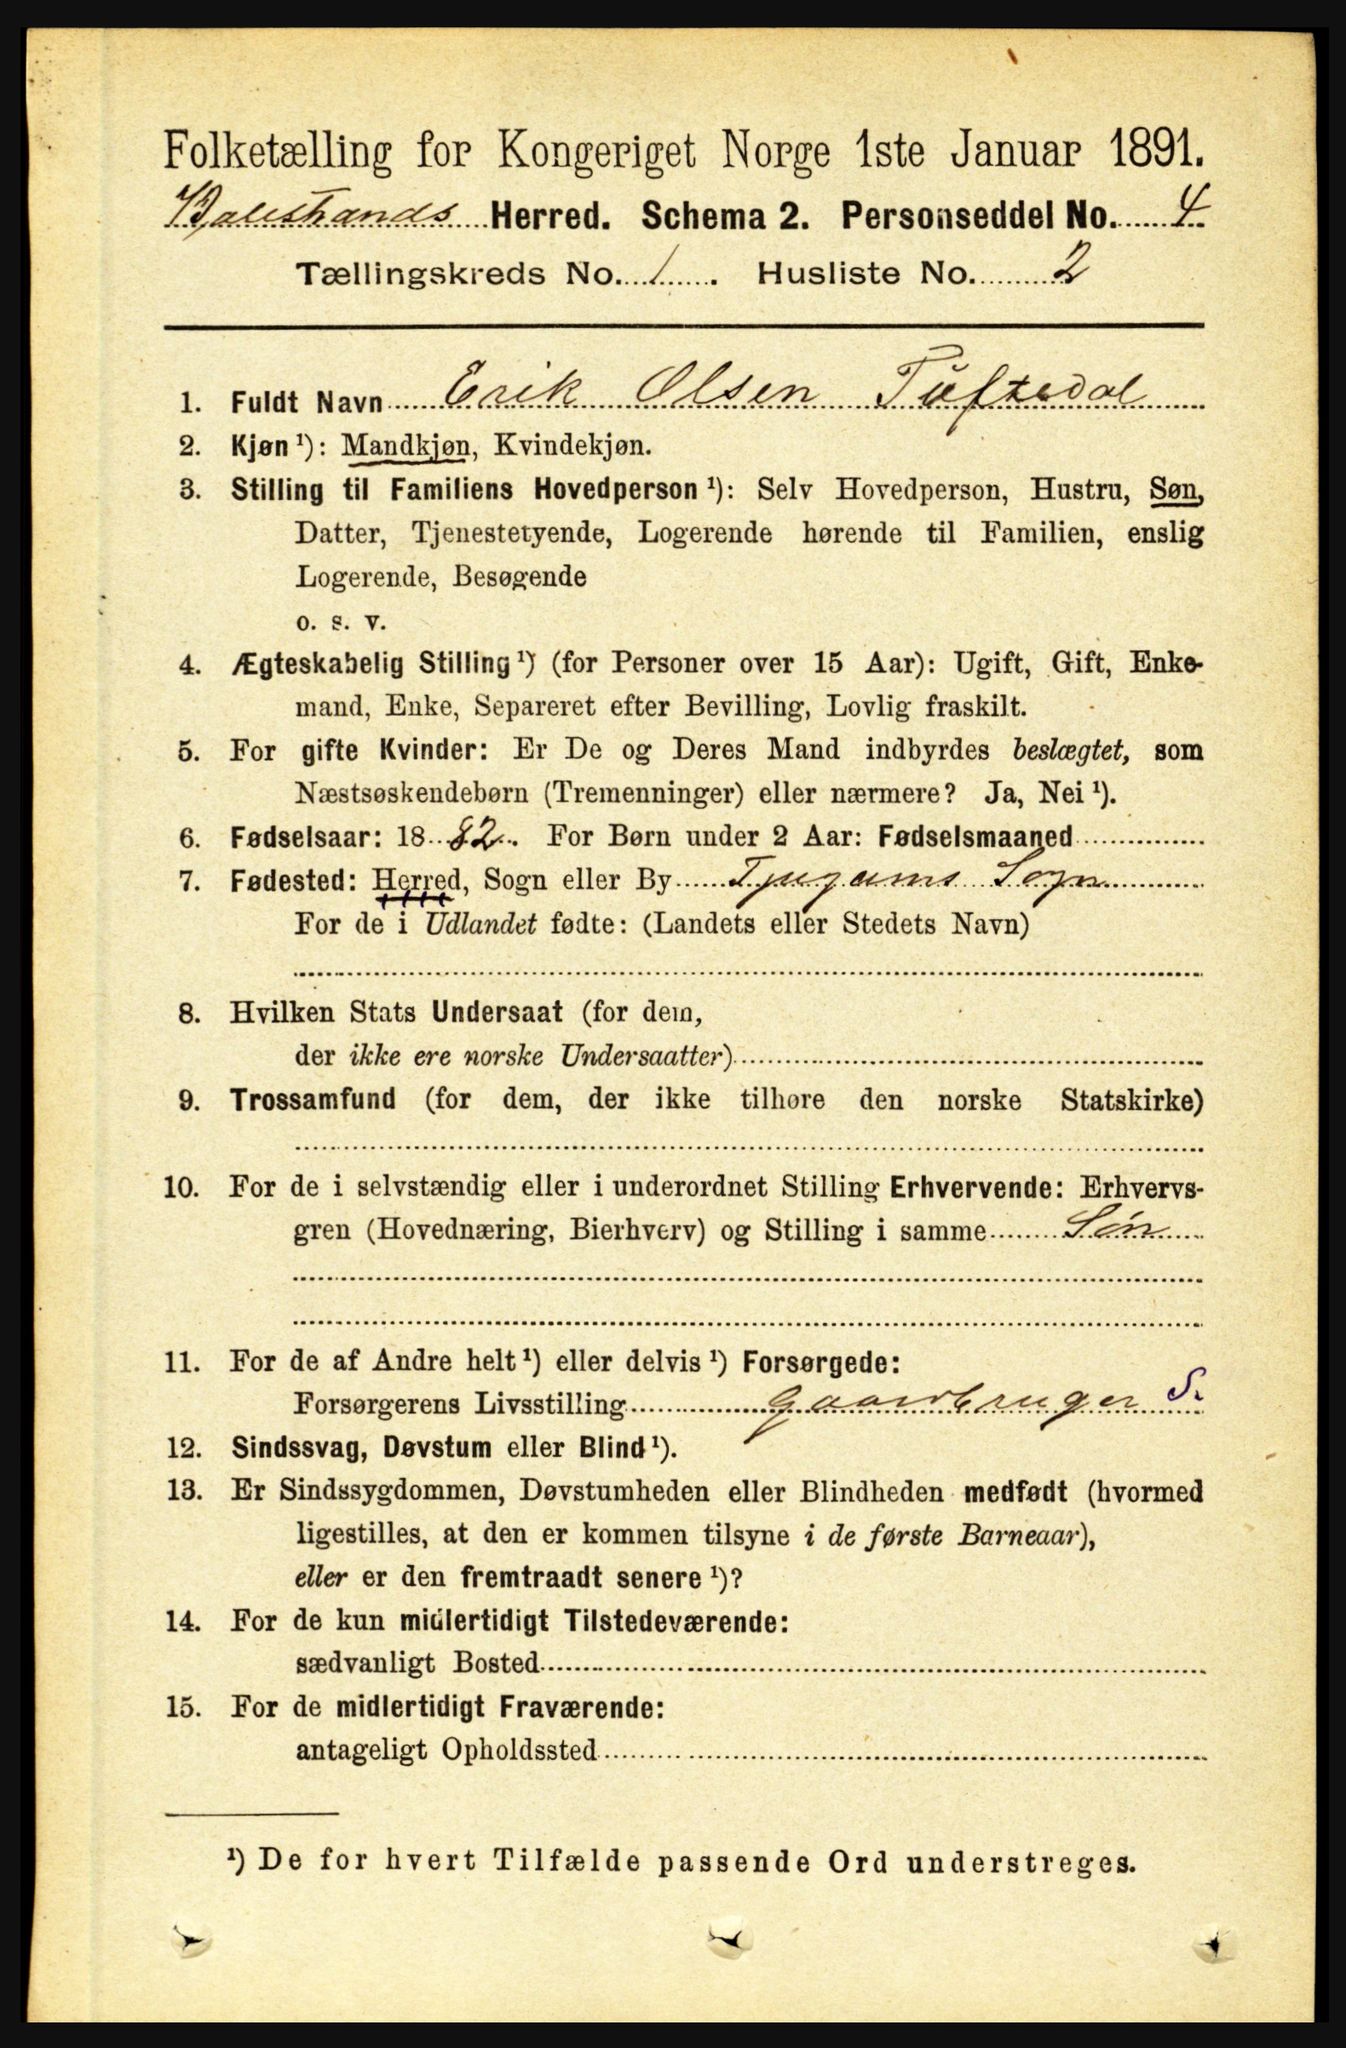 Folketælling for Kongeriget Norge 1ste Januar 1891.
Balestrands Herred. Schema 2. Personseddel No. 4
Tællingskreds No. 1. Husliste No. 2
1. Fuldt Navn Erik Olsen Tuftedal
2. Kjøn ¹): Mandkjøn, Kvindekjøn.
3. Stilling til Familiens Hovedperson ¹): Selv Hovedperson, Hustru, Søn,
Datter, Tjenestetyende, Logerende hørende til Familien, enslig
Logerende, Besøgende
o. s. v.
4. Ægteskabelig Stilling ¹) (for Personer over 15 Aar): Ugift, Gift, Enke-
mand, Enke, Separeret efter Bevilling, Lovlig fraskilt.
5. For gifte Kvinder: Er De og Deres Mand indbyrdes beslægtet, som
Næstsøskendebørn (Tremenninger) eller nærmere? Ja, Nei ¹).
6. Fødselsaar: 1882. For Børn under 2 Aar: Fødselsmaaned
7. Fødested: Herred, Sogn eller By Tjugums Sogn
For de i Udlandet fødte: (Landets eller Stedets Navn)
8. Hvilken Stats Undersaat (for dem,
der ikke ere norske Undersaatter)
9. Trossamfund (for dem, der ikke tilhøre den norske Statskirke)
10. For de i selvstændig eller i underordnet Stilling Erhvervende: Erhvervs-
gren (Hovednæring, Bierhverv) og Stilling i samme Søn
11. For de af Andre helt ¹) eller delvis ¹) Forsørgede:
Forsørgerens Livsstilling Gaardbruger S.
12. Sindssvag, Døvstum eller Blind ¹).
13. Er Sindssygdommen, Døvstumheden eller Blindheden medfødt (hvormed
ligestilles, at den er kommen tilsyne i de første Barneaar),
eller er den fremtraadt senere ¹)?
14. For de kun midlertidigt Tilstedeværende:
sædvanligt Bosted
15. For de midlertidigt Fraværende:
antageligt Opholdssted
¹) De for hvert Tilfælde passende Ord understreges.